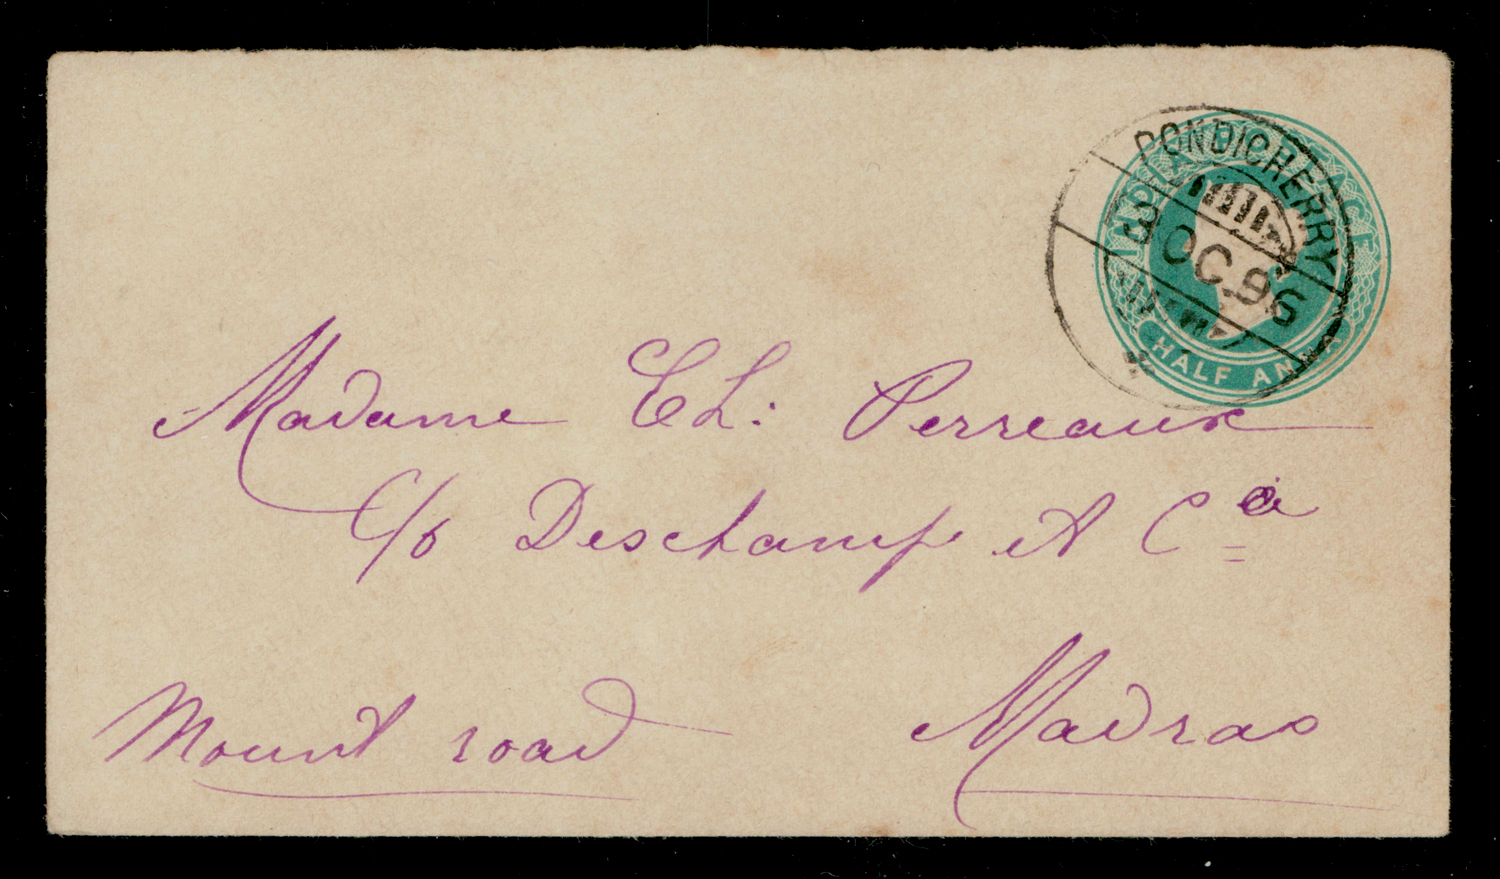 INDIA POSTAGE
HALF ANNA
PONDICHERRY
3
OC.96
Madame Ch: Perreaux
C/o Deschamp et Cie
Mount road
Madras